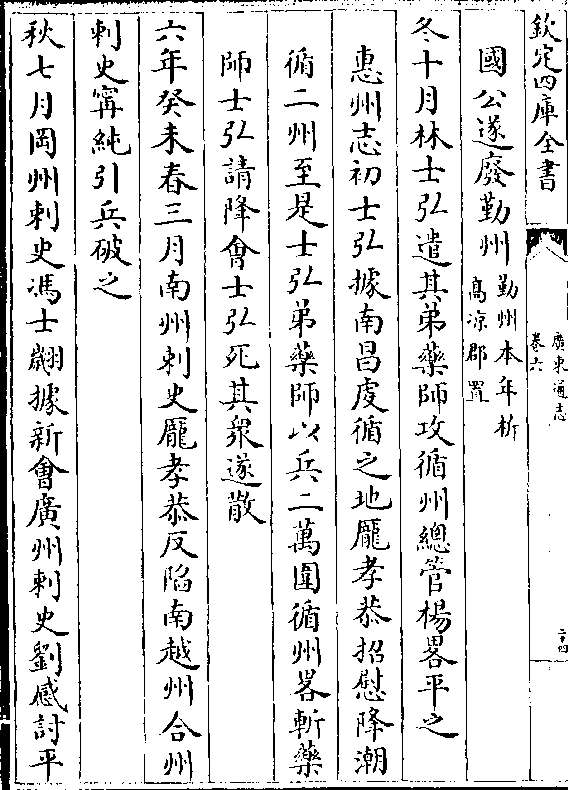 欽定四庫全書
廣東通志
卷六
二十四
國公遂廢勤州勤州本年析
高涼郡置
冬十月林士弘遣其弟藥師攻循州總管楊畧平之
惠州志初士弘據南昌虔循之地龎孝恭招慰降潮
循二州至是士弘弟藥師以兵二萬圍循州畧斬藥
師士弘請降會士弘死其衆遂散
六年癸未春三月南州刺史龎孝恭反陷南越州合州
刺史甯純引兵破之
秋七月岡州刺史馮士翽據新會廣州刺史劉感討平